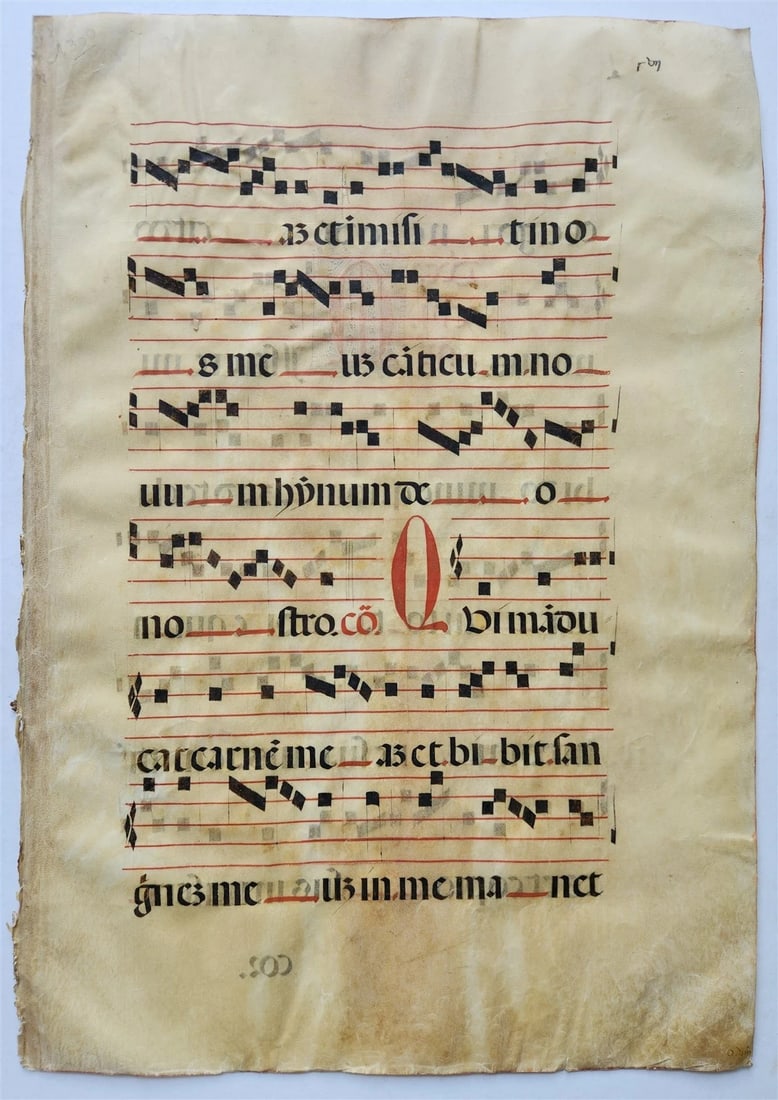 aʒ et imisi t in o
s me uʒ cāticu m no
uu m hỹnum de o
no stro. cō. Q Vi mādu
cat carnē me aʒ et bi bit san
gnēʒ me uʒ in me ma net